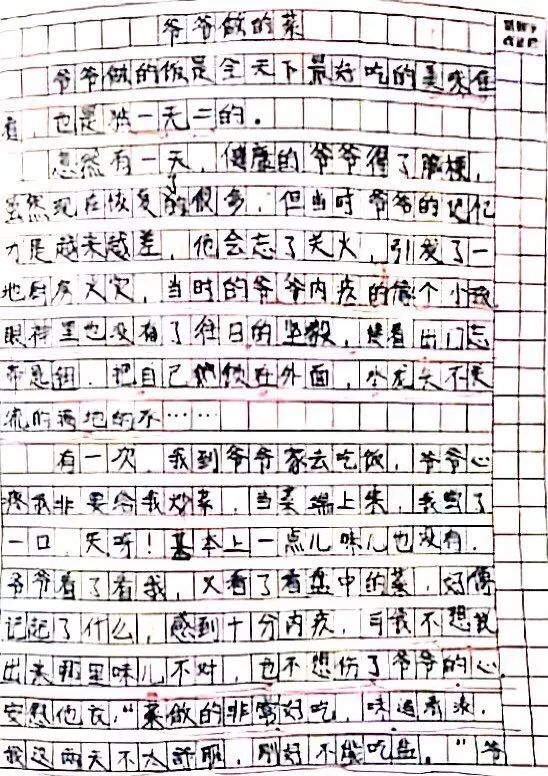 爷爷做的菜
爷爷做的饭是全天下最好吃的美味佳
肴，也是独一无二的。
忽然有一天，健康的爷爷得了脑梗，
虽然现在恢复了很多，但当时爷爷的记忆
力是越来越差，他会忘了关火，引发了一
地厨房火灾，当时的爷爷内疚的像个小孩
眼神里也没有了往日的坚毅，接着出门忘
带钥匙，把自己锁在外面，水龙头不关
流的满地的水……
有一次，我到爷爷家去吃饭，爷爷心
疼我非要给我炒菜，当菜端上来，我尝了
一口，天呀！基本上一点儿味儿也没有，
爷爷看了看我，又看了看盘中的菜，好像
记起了什么，感到十分内疚，可我不想说
出来那里味儿不对，也不想伤了爷爷的心，
安慰他说，“菜做的非常好吃，味道香浓，
我这两天不太舒服，刚好不能吃盐。”爷